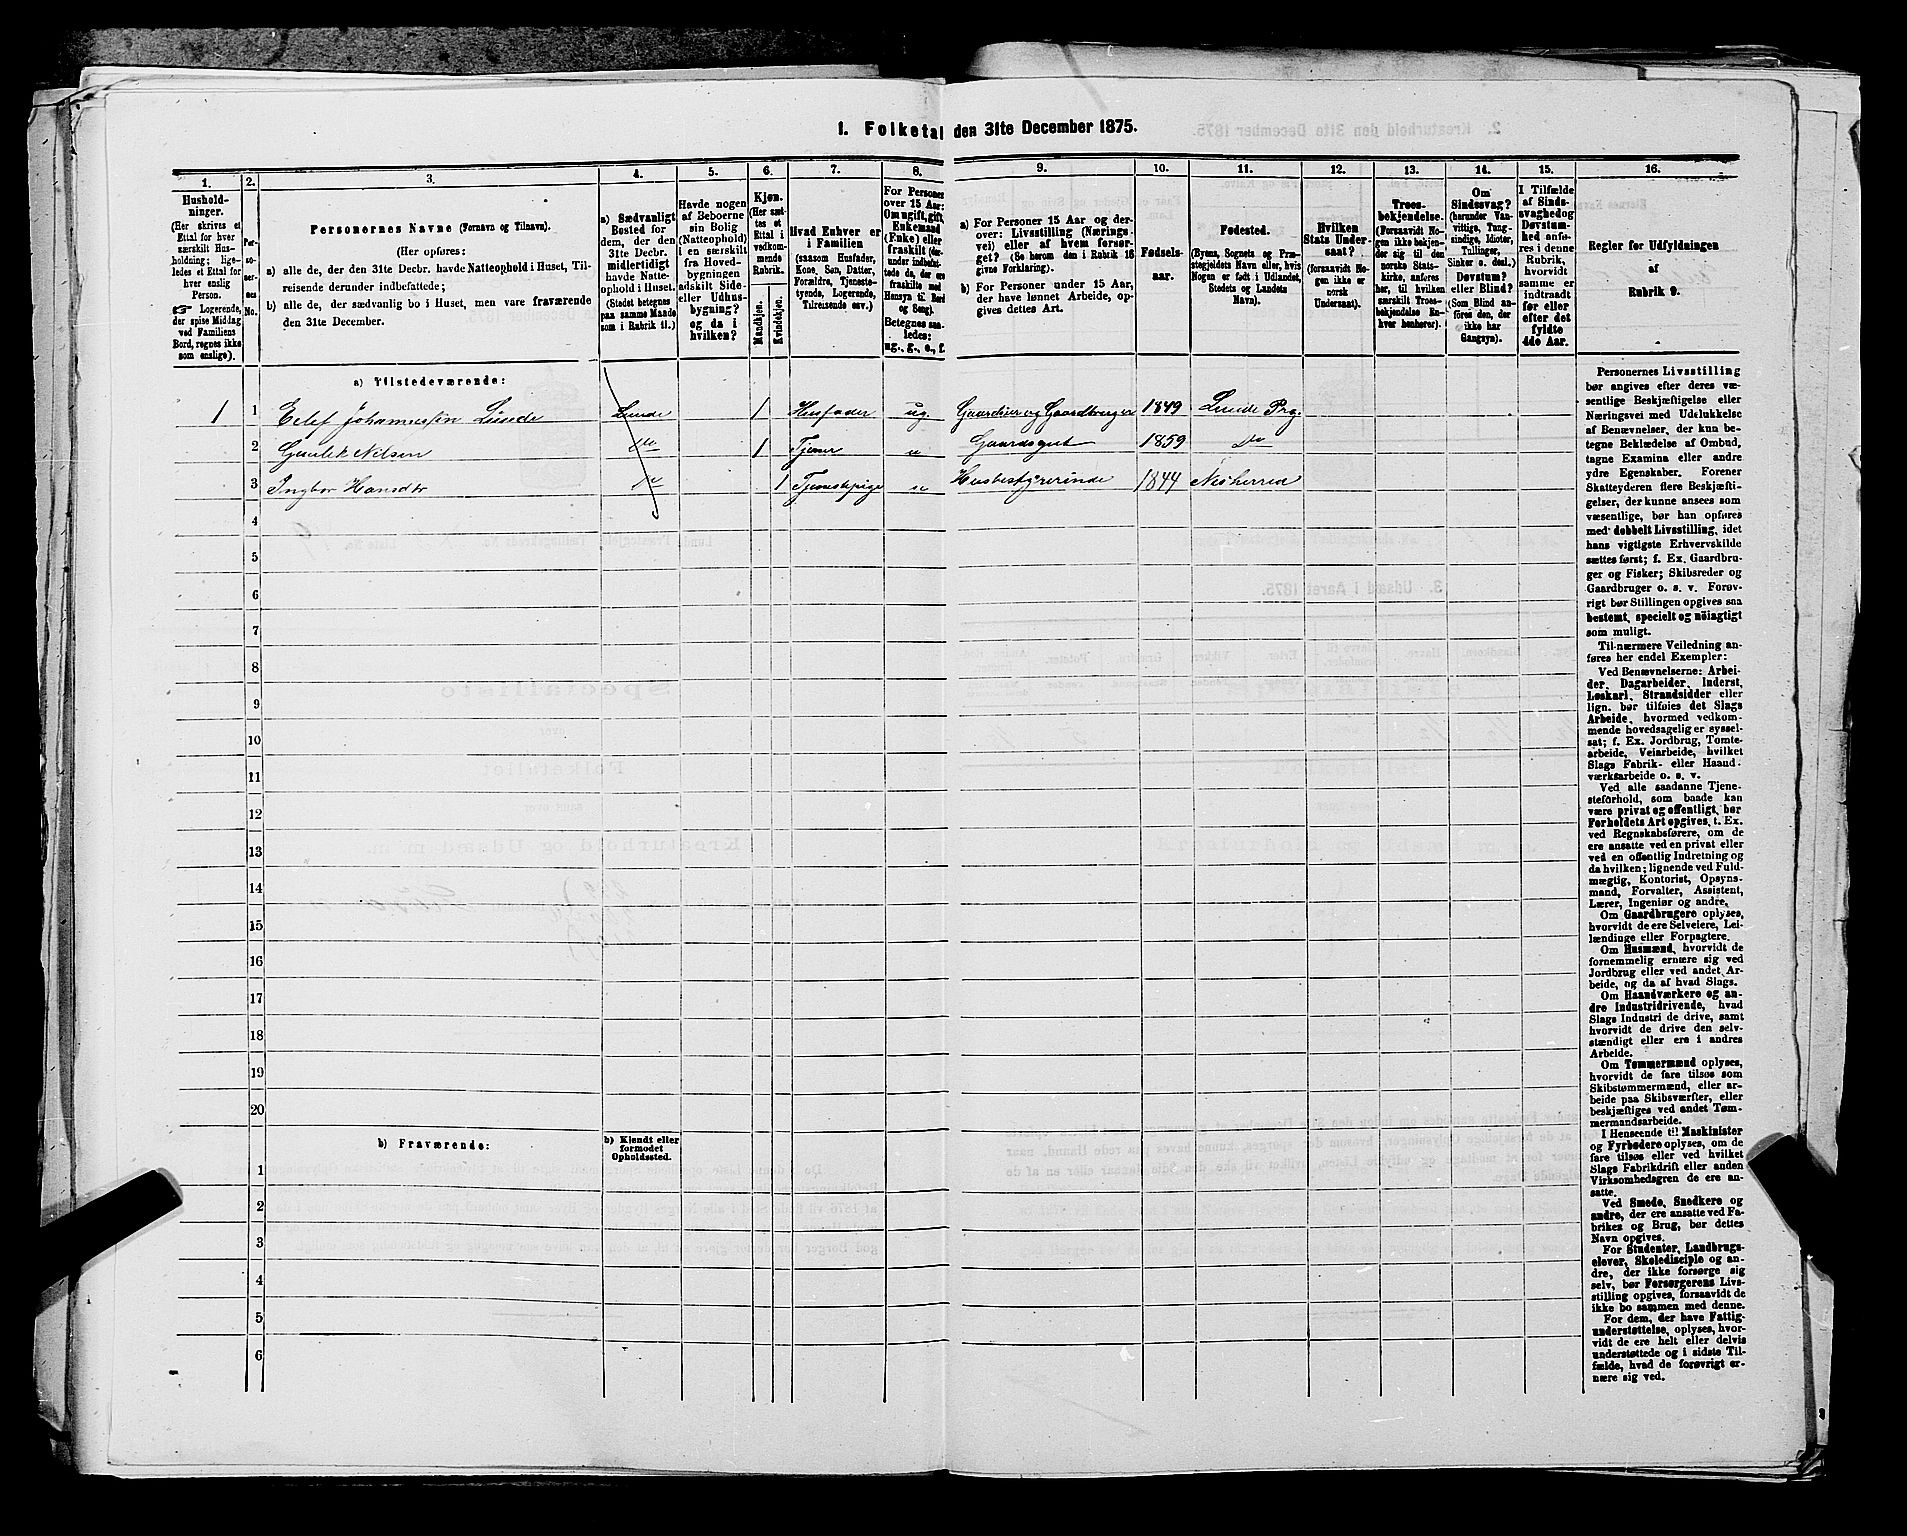 1. Folketal den 31te December 1875.
1. 2. 3. 4. 5. 6. 7. 8. 9. 10. 11. 12. 13. 14. 15. 16.
Husholdninger.
(Her skrives et Ettal for hver særskilt Husholdning; ligeledes et Ettal for hver enslig Person.
☞ Logerende, der spise Middag ved Familiens Bord, regnes ikke som enslige).
Personernes No.
Personernes Navne (Fornavn og Tilnavn).
(Her opføres:
a) alle de, der den 31te Decbr. havde Natteophold i Huset, Tilreisende derunder indbefattede;
b) alle de, der sædvanlig bo i Huset, men vare fraværende den 31te December.
a) Sædvanligt Bosted for dem, der den 31te Decbr. midlertidigt havde Natteophold i Huset. (Stedet betegnes paa samme Maade som i Rubrik 11.)
Havde nogen af Beboerne sin Bolig (Natteophold) i en særskilt fra Hovedbygningen adskilt Side- eller Udhusbygning? og da i hvilken?
Kjøn. (Her sættes et Ettal i vedkommende Rubrik.
Mandkjøn.
Kvindekjøn.
Hvad Enhver er i Familien (saasom Husfader, Kone, Søn, Datter, Forældre, Tjenestetyende, Logerende, Tilreisende osv.)
For Personer over 15 Aar: Om ugift, gift, Enkemand (Enke) eller fraskilt (derunder indbefattede da, de ere fraskilte med Hensyn til Bord og Seng).
Betegnes saaledes: ug., g., e., f.
a) For Personer 15 Aar og derover: Livsstilling (Næringsvei) eller af hvem forsørget? (Se herom den i Rubrik 16 givne Forklaring).
b) For Personer under 15 Aar, der have lønnet Arbeide, opgives dettes Art.
Fødselsaar.
Fødested.
(Byens, Sognets og Præstegjeldets Navn eller, hvis Nogen er født i Udlandet, Stedets og Landets Navn).
Hvilken Stats Undersaat?
(forsaavidt Nogen ikke er norsk Undersaat).
Troesbekjendelse.
(Forsaavidt Nogen ikke bekjender sig til den norske Statskirke, anføres her, til hvilken særskilt Troesbekjendelse Enhver henhører).
Om Sindssvag? (herunder Vanvittige, Tungsindige, Idioter, Tullinger, Sinker o. desl.) Døvstum? eller Blind? (Som Blind anføres den, der ikke har Gangsyn).
I Tilfælde af Sindssvaghed og Døvstumhed anføres i denne Rubrik, hvorvidt samme er indtraadt før eller efter det fyldte 4de Aar.
Regler for Udfyldningen af Rubrik 9.
a) Tilstedeværende:
1 1 Eilef Johannessen Lunde Lunde 1 Husfader ug. Gaardeier og Gaardbruger 1849 Lunde Prg.
2 Gunlek Nilsen do 1 Tjener u Gaardsgut 1859 do
3 Ingbor Hansdtr do 1 Tjenestepige u Husbestyrerinde 1844 Nesherred
4
5
6
7
8
9
10
11
12
13
14
15
16
17
18
19
20
b) Fraværende:
b) Kjendt eller formodet Opholdssted.
1
2
3
4
5
6
Personernes Livsstilling
bør angives efter deres væ-
sentlige Beskjæftigelse eller
Næringsvei med Udelukkelse
af Benævnelser, der kun be-
tegne Beklædelse af Ombud,
tagne Examina eller andre
ydre Egenskaber. Forener
Skatteyderen flere Beskjæfti-
gelser, der kunne ansees som
væsentlige, bør han opføres
med dobbelt Livsstilling, idet
hans vigtigste Erhvervskilde
sættes først; f. Ex. Gaardbru-
ger og Fisker; Skibsreder og
Gaardbruger o. s. v. Forøv-
rigt bør Stillingen opgives saa
bestemt, specielt og nöiagtigt
som muligt.
Til nærmere Veiledning an-
føres her endel Exempler:
Ved Benævnelserne: Arbei-
der, Dagarbeider, Inderst,
Løskarl, Strandsidder eller
lign. bør tilføies det Slags
Arbeide, hvormed vedkom-
mende hovedsagelig er syssel-
sat; f. Ex. Jordbrug, Tomte-
arbeide, Veiarbeide, hvilket
Slags Fabrik- eller Haand-
værksarbeide o. s. v.
Ved alle saadanne Tjene-
steforhold, som baade kan
være privat og offentligt, bør
Forholdets Art opgives, t. Ex.
ved Regnskabsførere, om de
ere ansatte ved en privat eller
ved en offentlig Indretning og
da hvilken; lignende ved Fuld-
mægtig, Kontorist, Opsyns-
mand, Forvalter, Assistent,
Lærer, Ingeniør og andre.
Om Gaardbrugere oplyses,
hvorvidt de ere Selveiere, Lei-
lændinge eller Forpagtere.
Om Husmænd, hvorvidt de
fornemmelig ernære sig ved
Jordbrug eller ved andet Ar-
beide, og da af hvad Slags.
Om Haandværkere og an-
dre Industridrivende, hvad
Slags Industri de drive, samt
hvorvidt de drive den selv-
stændigt eller ere i andres
Arbeide.
Om Tømmermænd oplyses,
hvorvidt de fare tilsøs som
Skibstømmermænd, eller ar-
beide paa Skibsværfter, eller
beskjæftiges ved andet Tøm-
mermandsarbeide.
I Henseende til Maskinister
og Fyrbødere oplyses, om de
fare tilsøs eller ved hvilket
Slags Fabrikdrift eller anden
Virksomhedsgren de ere an-
satte.
Ved Smede, Snedkere og
andre, der ere ansatte ved Fa-
briker og Brug, bør dettes
Navn opgives.
For Studenter, Landbrugs-
elever, Skoledisciple og an-
dre, der ikke forsørge sig
selv, bør Forsørgerens Livs-
stilling opgives, forsaavidt de
ikke bo sammen med denne.
For dem, der have Fattig-
understøttelse, oplyses, hvor-
vidt de ere helt eller delvis
understøttede og i sidste Til-
fælde, hvad de forøvrigt er-
nære sig ved.